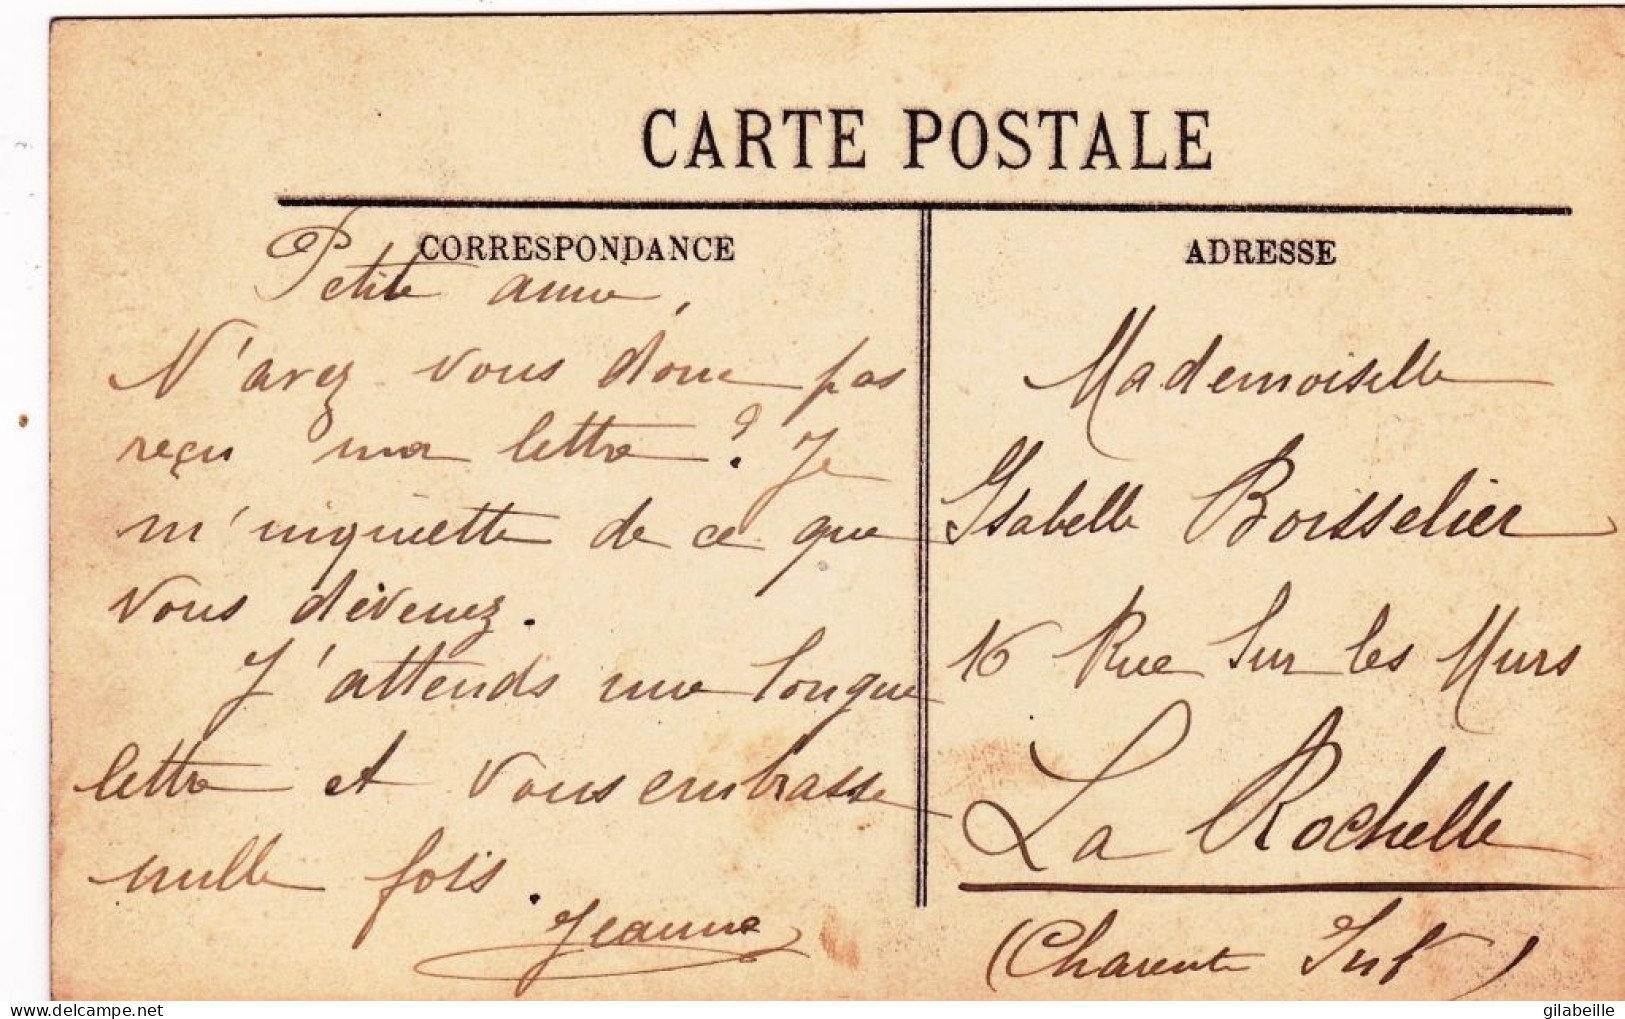 CARTE POSTALE
CORRESPONDANCE
Petite amie,
N'avez vous donc pas
reçu ma lettre ? Je
m'inquiette de ce que
vous devenez.
J'attends une longue
lettre et vous embrasse
mille fois.
Jeanne
ADRESSE
Mademoiselle
Isabelle Boisselier
16 Rue Sur les Murs
La Rochelle
(Charente Inf)
gilabeille